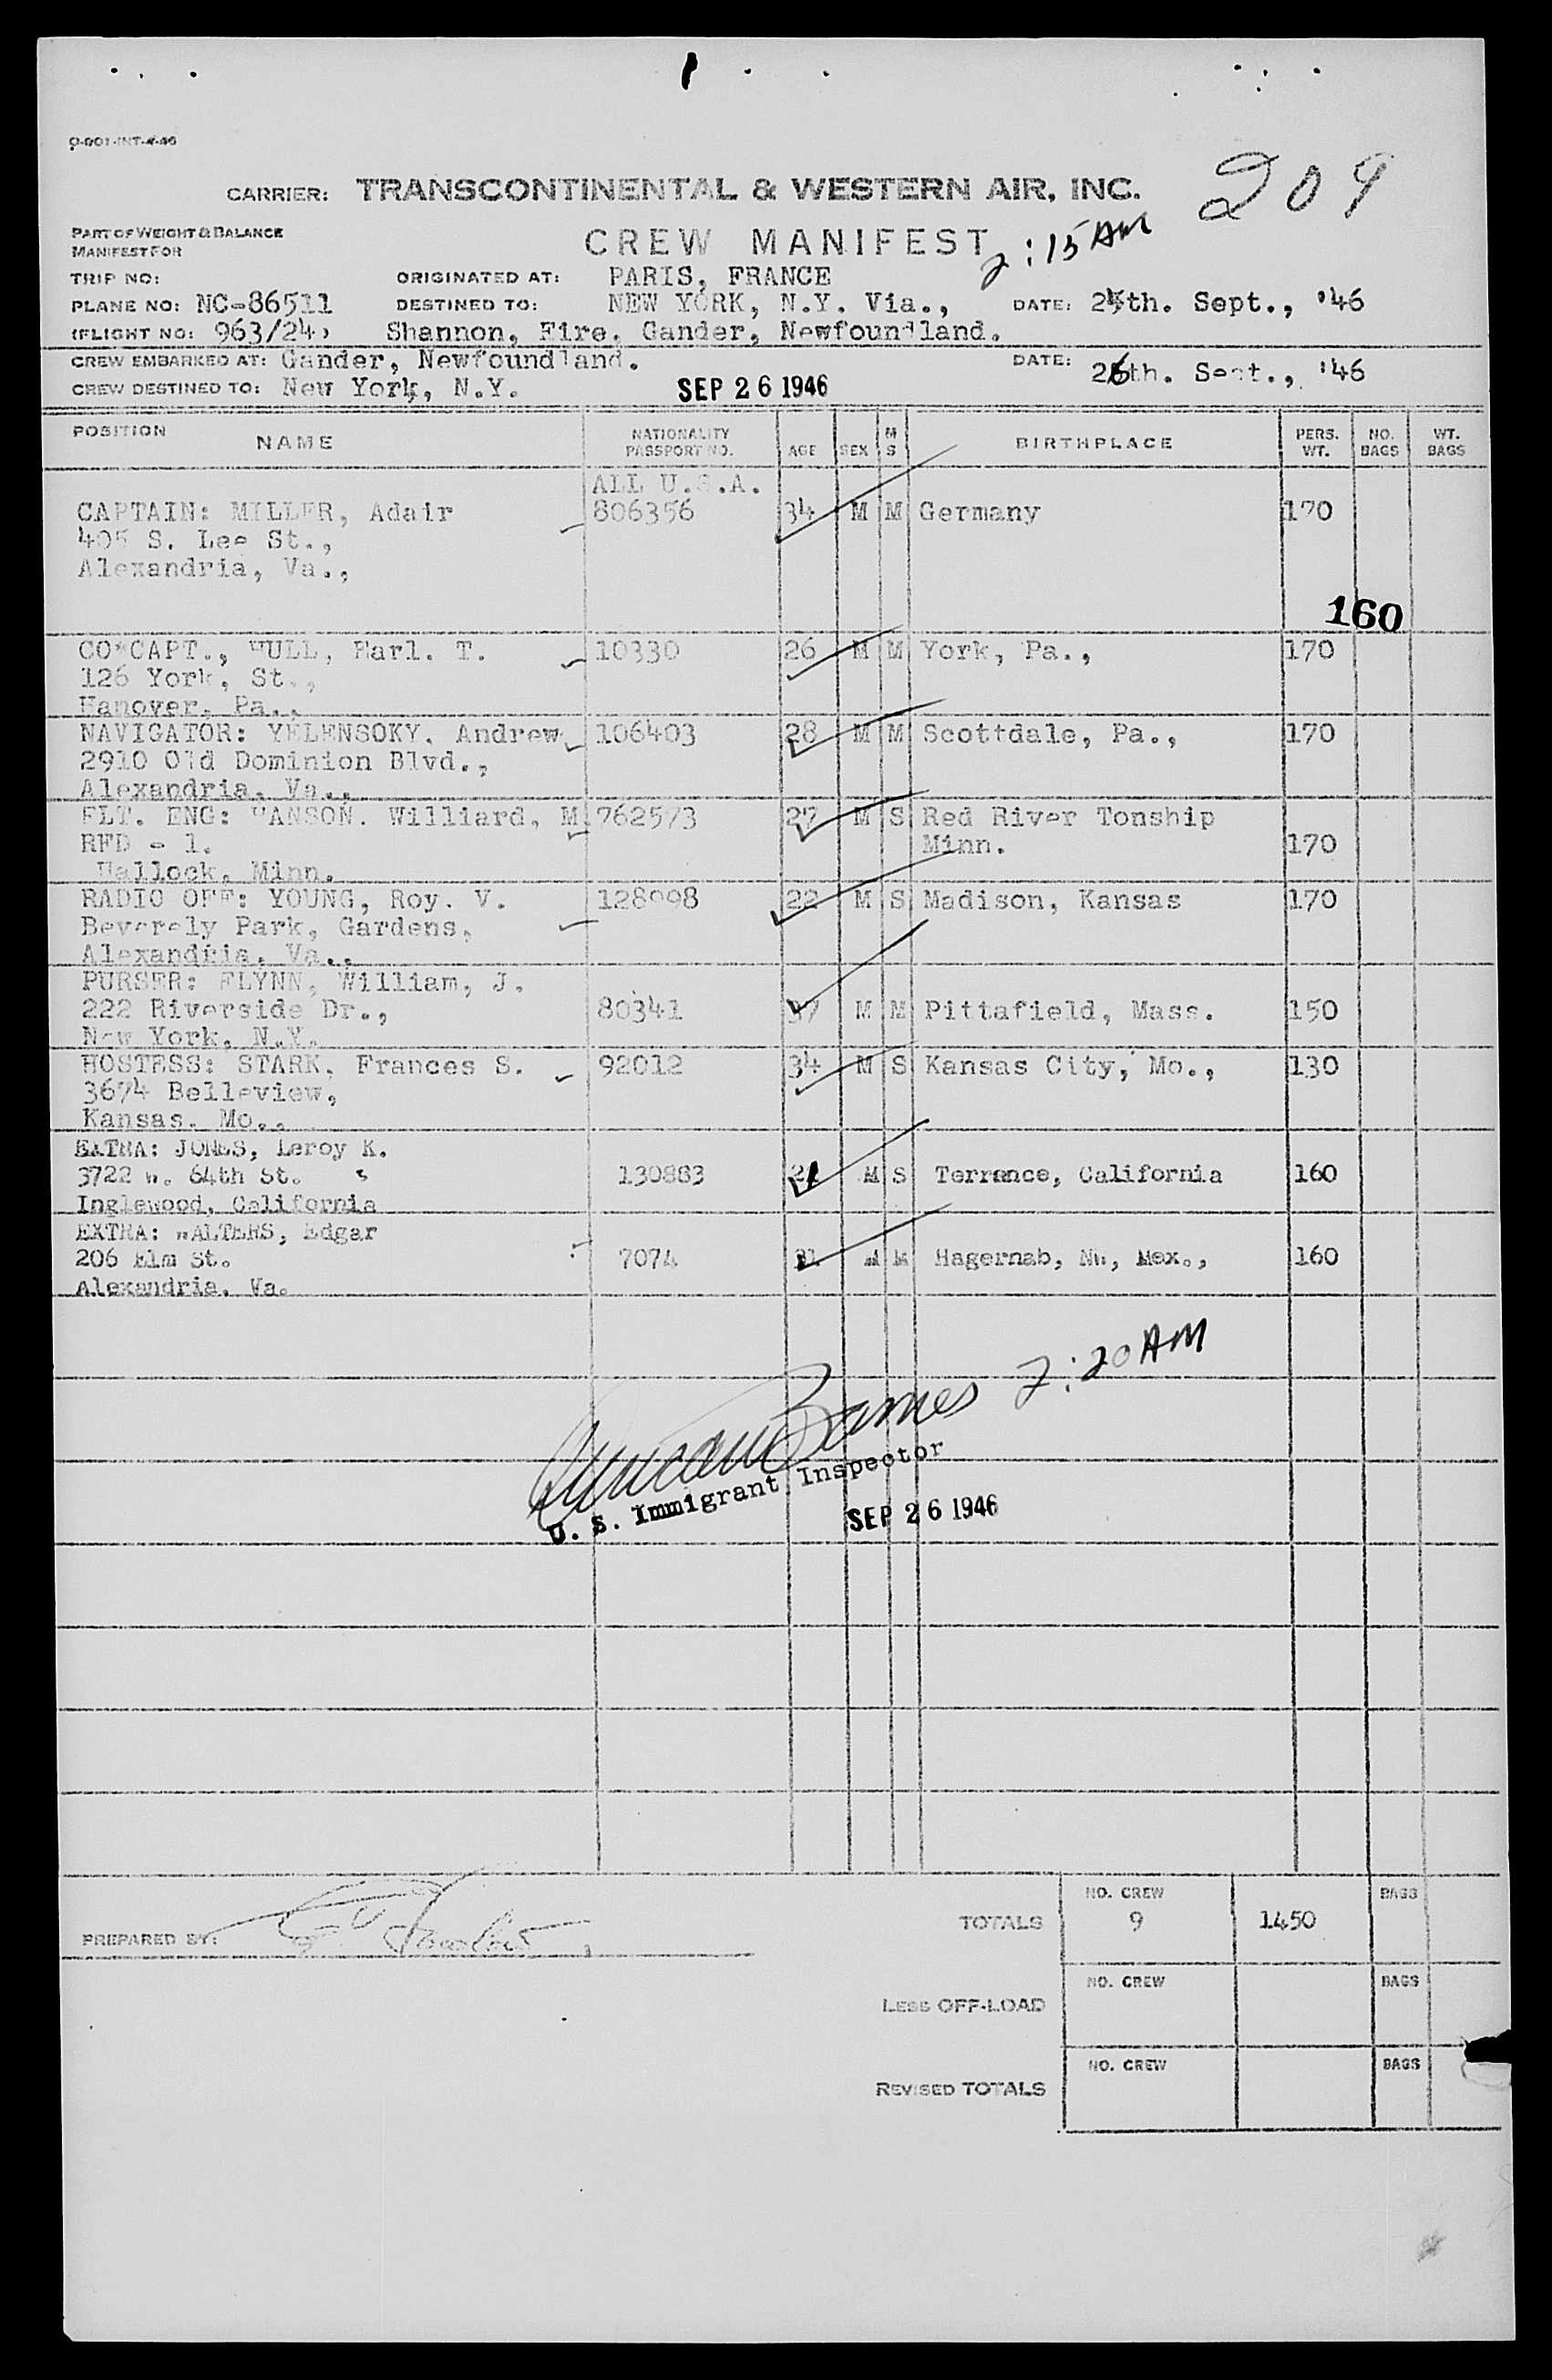 O-001-INT-4-46
209
CARRIER: TRANSCONTINENTAL & WESTERN AIR, INC.
PART OF WEIGHT & BALANCE
MANIFEST FOR
CREW MANIFEST
2:15 AM
TRIP NO:
ORIGINATED AT: PARIS, FRANCE
PLANE NO: NC-86511 DESTINED TO: NEW YORK, N.Y. Via., DATE: 25th. Sept., '46
(FLIGHT NO: 963/24) Shannon, Eire, Gander, Newfoundland.
CREW EMBARKED AT: Gander, Newfoundland. DATE: 26th. Sept., '46
CREW DESTINED TO: New York, N.Y. SEP 26 1946
POSITION NAME NATIONALITY PASSPORT NO. AGE SEX M S BIRTHPLACE PERS. WT. NO. BAGS WT. BAGS
ALL U.S.A.
CAPTAIN: MILLER, Adair 806356 34 M M Germany 170
405 S. Lee St.,
Alexandria, Va.,
160
CO*CAPT., WULL, Earl. T. 10330 26 M M York, Pa., 170
126 York, St.,
Hanover, Pa.,
NAVIGATOR: YELENSOKY, Andrew 106403 28 M M Scottdale, Pa., 170
2910 Old Dominion Blvd.,
Alexandria, Va.,
FLT. ENG: WANSON. Williard, M 762573 27 M S Red River Tonship
RFD - 1. Minn. 170
Hallock, Minn.
RADIO OFF: YOUNG, Roy. V. 128998 22 M S Madison, Kansas 170
Beverely Park, Gardens,
Alexandria, Va.,
PURSER: FLYNN, William, J.
222 Riverside Dr., 80341 37 M M Pittafield, Mass. 150
New York, N.Y.
HOSTESS: STARK, Frances S. 92012 34 M S Kansas City, Mo., 130
3674 Belleview,
Kansas. Mo.,
EXTRA: JONES, Leroy K.
3722 W. 64th St. 130883 21 M S Terrance, California 160
Inglewood, California
EXTRA: WALTERS, Edgar
206 Elm St. 7074 31 M M Hagernab, Nw, Mex., 160
Alexandria, Va.
Duncan Barnes 2:20 AM
U. S. Immigrant Inspector
SEP 26 1946
PREPARED BY:
TOTALS NO. CREW 9 1450 BAGS
LESS OFF-LOAD NO. CREW BAGS
REVISED TOTALS NO. CREW BAGS